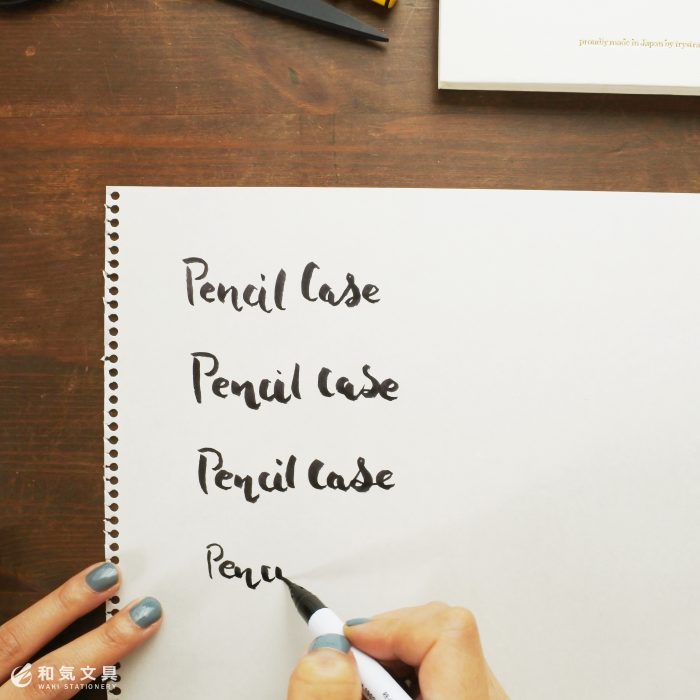 proudly made in Japan by itysta
Pencil Case
Pencil Case
Pencil Case
Penci
和気文具
WAKI STATIONERY